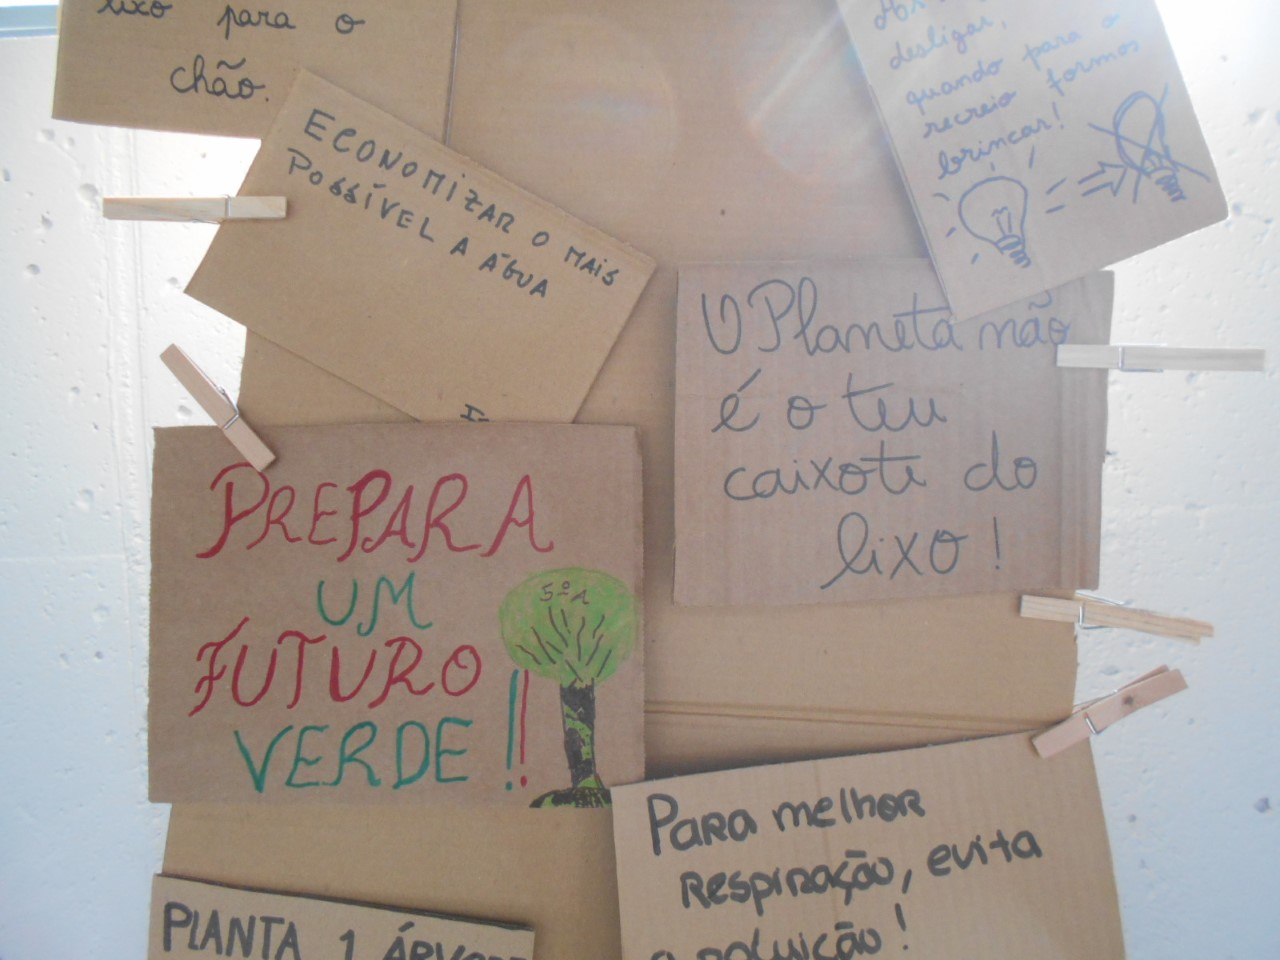 lixo para o
chão.
ECONOMIZAR O MAIS
POSSÍVEL A ÁGUA
desligar,
quando para o
recreio formos
brincar!
O Planeta não
é o teu
caixote do
lixo!
PREPARA
UM
FUTURO
VERDE!!
5ºA
Para melhor
respiração, evita
a poluição!
PLANTA 1 ÁRVORE